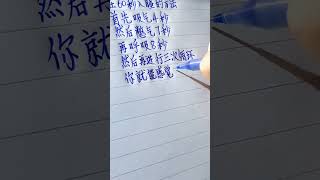 让60秒入眠的方法
首先吸气4秒
然后憋气7秒
再呼吸8秒
然后再进行三次循环
你就能感觉
然后
你就